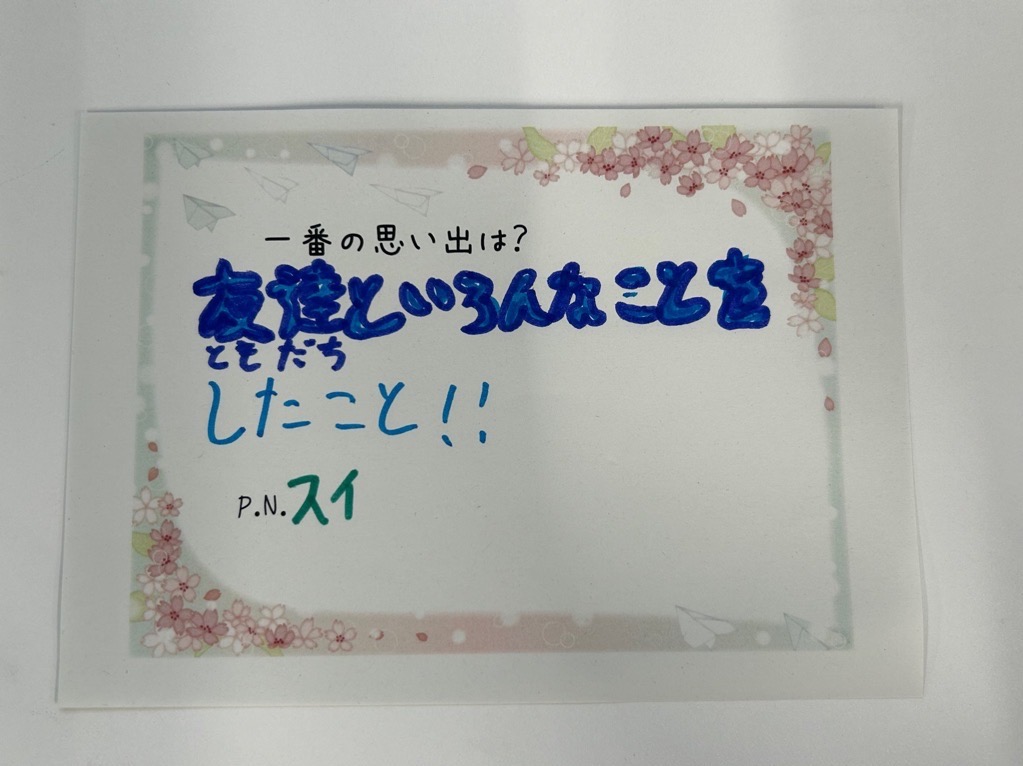 一番の思い出は?
友達といろんなことを
ともだち
したこと!!
P.N.スイ